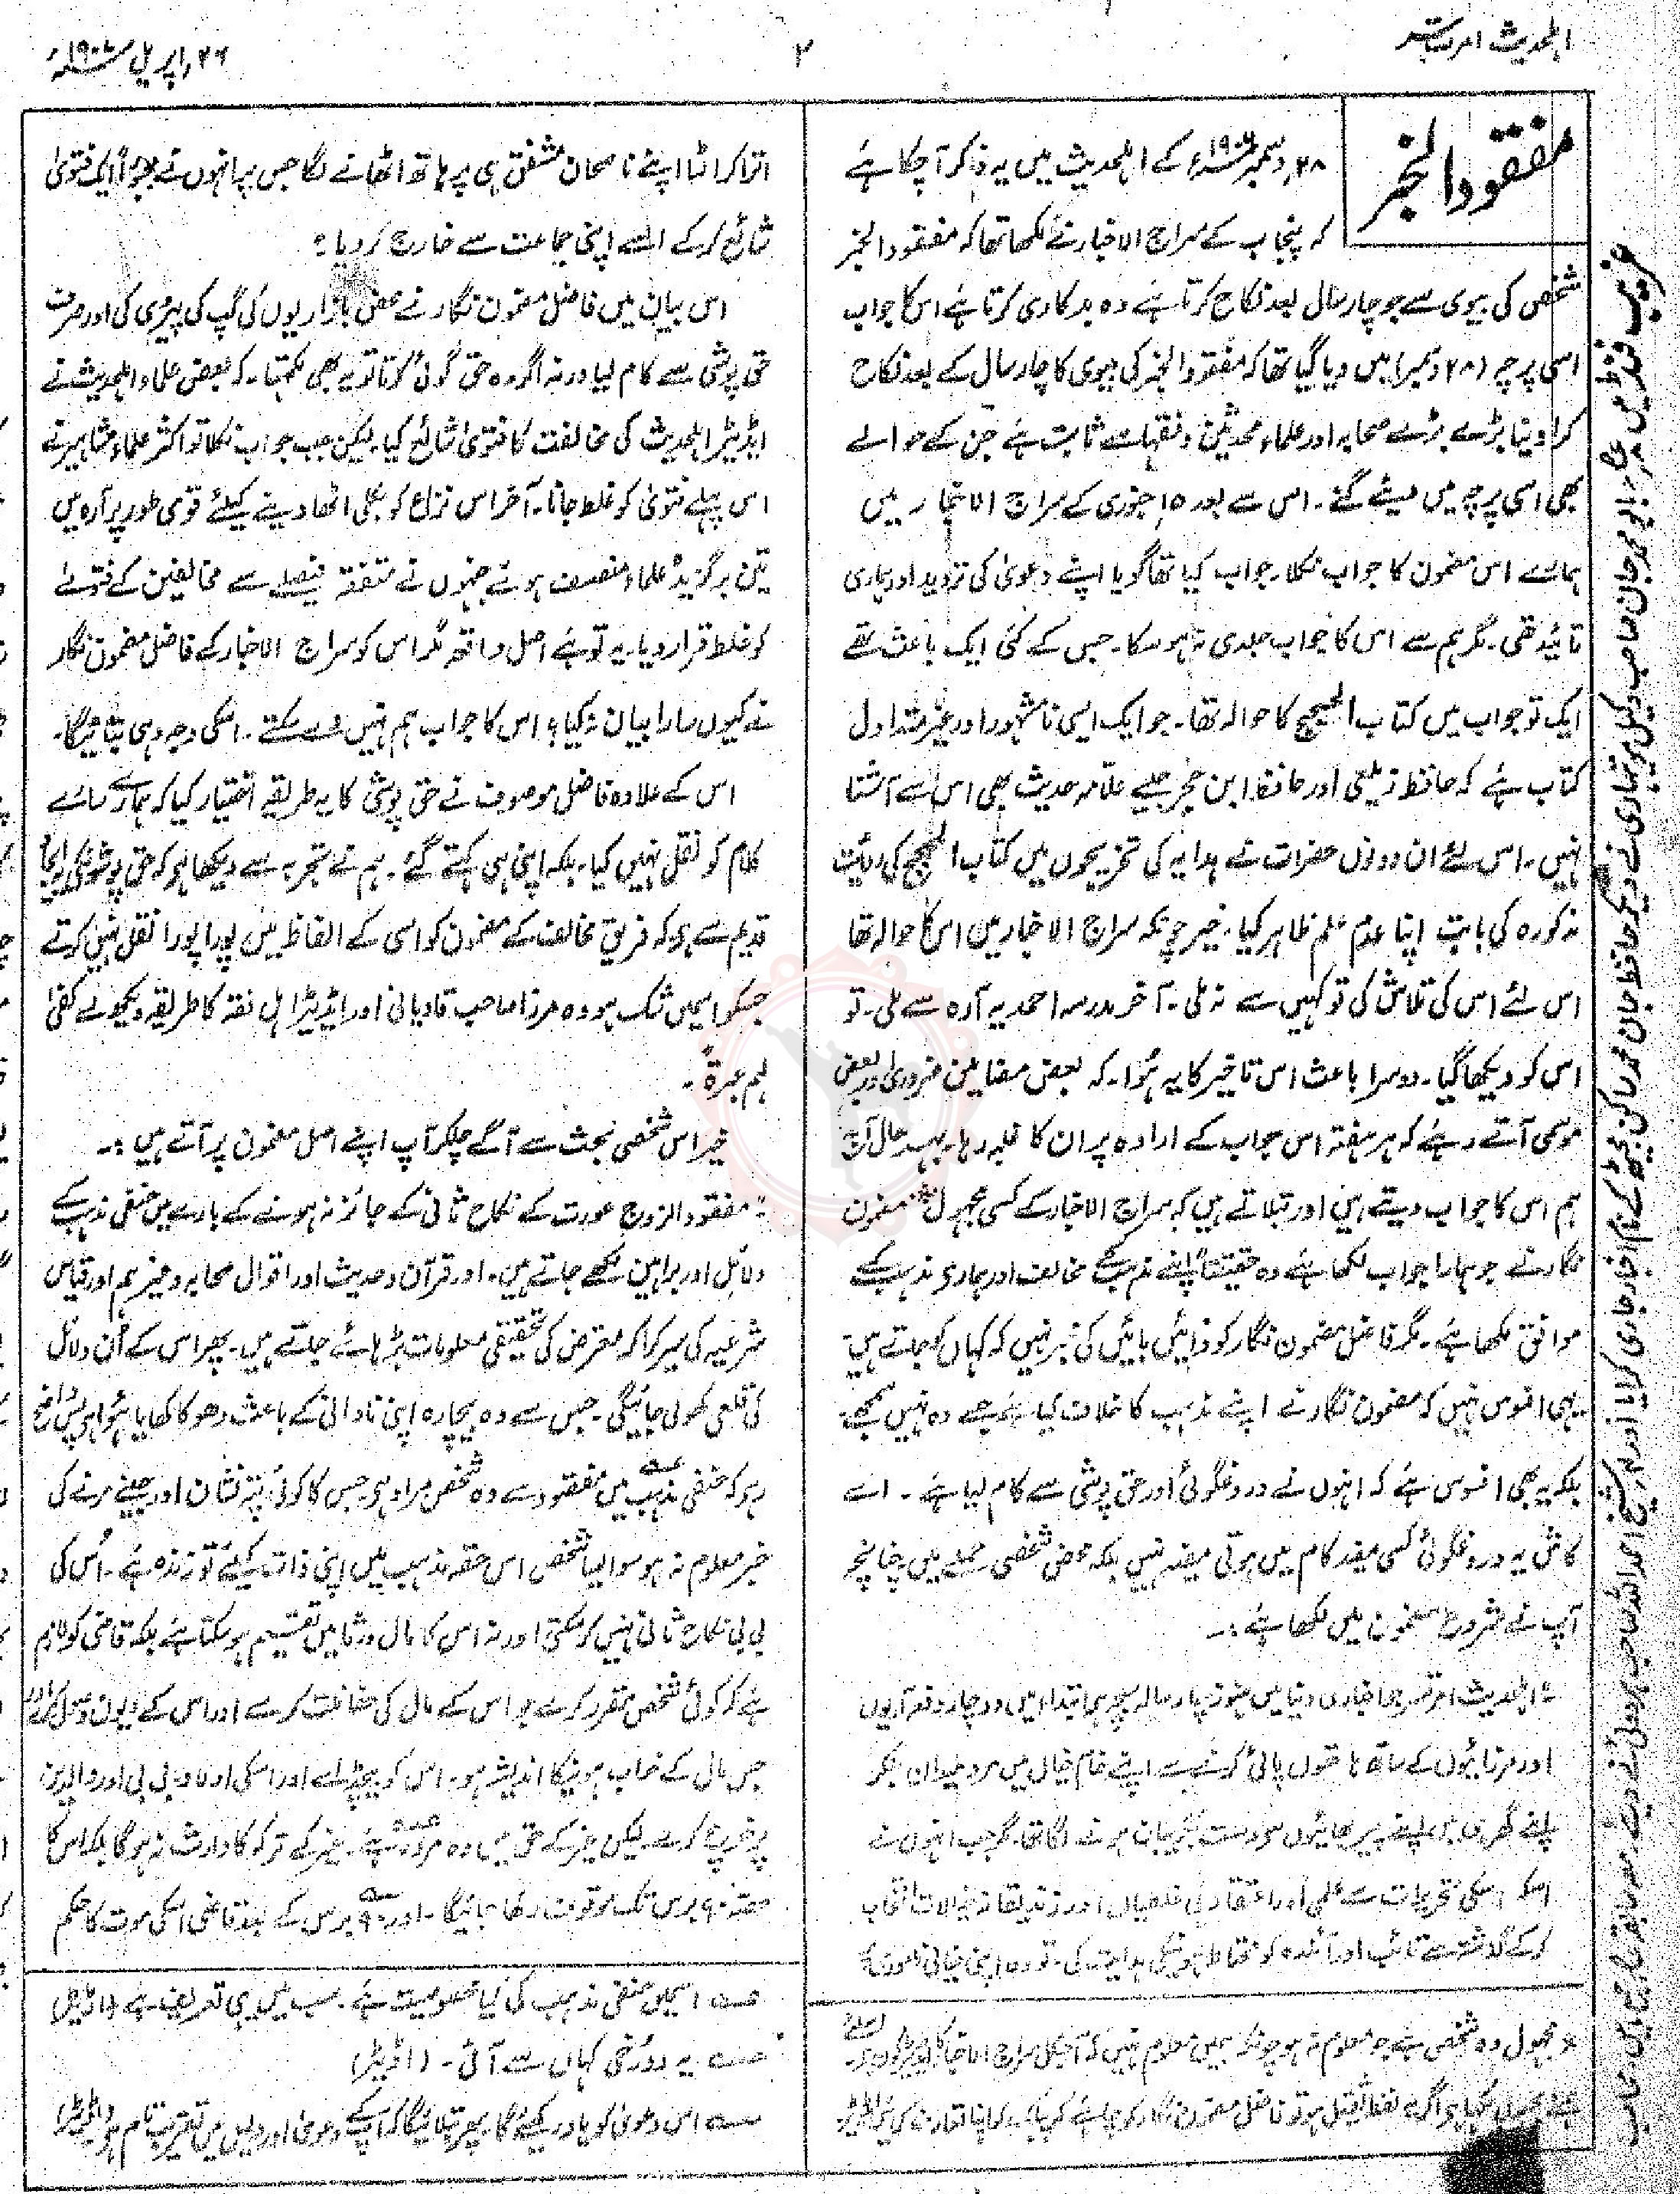 اہلحدیث امرتسر
۲
۲۶ اپریل ۱۹۰۷ء
مفقود الخبر
۲۸ دسمبر ۱۹۰۶ء کے اہلحدیث میں یہ ذکر آچکا ہے
کہ پنجاب کے سراج الاخبار نے لکھا تھا کہ مفقود الخبر
شخص کی بیوی سے جو چار سال بعد نکاح کرتا ہے وہ بدکاری کرتا ہے اس کا جواب
اسی پرچہ (۲۸ دسمبر) میں دیا گیا تھا کہ مفقود الخبر کی بیوی کا چار سال کے بعد نکاح
کرا دینا بڑے بڑے صحابہ اور علماء محدثین و فقہا سے ثابت ہے جن کے حوالے
بھی اسی پرچہ میں دیئے گئے۔ اس سے بعد ۱۵ جنوری کے سراج الاخبار میں
ہمارے اس مضمون کا جواب نکلا۔ جواب کیا تھا گویا اپنے دعویٰ کی تردید اور ہماری
تائید تھی۔ مگر ہم سے اس کا جواب جلدی نہ ہو سکا۔ جس کے کئی ایک باعث تھے
ایک تو جواب میں کتاب الحجج کا حوالہ تھا۔ جو ایک ایسی نامشہور اور غیر متداول
کتاب ہے کہ حافظ زیلعی اور حافظ ابن حجر جیسے علامہ حدیث بھی اس سے آشنا
نہیں۔ اس لئے ان دونوں حضرات نے ہدایہ کی تخریجوں میں کتاب الحجج کی روایت
مذکورہ کی بابت اپنا عدم علم ظاہر کیا۔ خیر چونکہ سراج الاخبار میں اس کا حوالہ تھا
اس لئے اس کی تلاش کی تو کہیں سے نہ ملی۔ آخر مدرسہ احمدیہ آرہ سے ملی۔ تو
اس کو دیکھا گیا۔ دوسرا باعث اس تاخیر کا یہ ہوا۔ کہ بعض مضامین ضروری اور بعض
موسمی آتے رہے کہ ہر ہفتہ اس جواب کے ارادہ پر ان کا غلبہ رہا۔ بہر حال آج
ہم اس کا جواب دیتے ہیں اور بتلاتے ہیں کہ سراج الاخبار کے کسی مجہول مضمون
نگار نے جو ہمارا جواب لکھا ہے وہ حقیقتاً اپنے مذہب کے مخالف اور ہماری مذہب کے
موافق لکھا ہے۔ مگر فاضل مضمون نگار کو دائیں بائیں کی خبر نہیں کہ کہاں کو جاتے ہیں
یہی افسوس نہیں کہ مضمون نگار نے اپنے مذہب کا خلاف کیا ہے جسے وہ نہیں سمجھے
بلکہ یہ بھی افسوس ہے کہ انہوں نے دروغگوئی اور حق پوشی سے کام لیا ہے۔ اے
کاش یہ دروغگوئی کسی مفید کام میں ہوتی مفید نہیں بلکہ محض شخصی حملے میں چنانچہ
آپ نے شروع مضمون میں لکھا ہے:۔
اہلحدیث امرتسر جو اخباری دنیا میں چار سالہ بچہ ہی ابتداء میں دو چار دفعہ آریوں
اور مرزائیوں کے ساتھ ہاتھوں پائی کرنے سے اپنے خام خیال میں مرد میدان بنکر
اپنے گھر ہی میں اپنے پیر بھائیوں سے دست بگریبان ہونے لگا تھا۔ مگر جب انہوں نے
اسکی تحریرات سے علمی اور اعتقادی غلطیاں اور زندیقانہ خیالات انتخاب
کرکے گذشتہ سے تائب اور آئندہ کو محتاط ہونیکی ہدایت کی۔ تو وہ اپنی
مجہول وہ شخص ہے جو معلوم نہ ہو چونکہ ہمیں معلوم نہیں کہ آجکل سراج الاخبار کا ایڈیٹر کون ہے۔ اسلئے
اترا کر الٹا اپنے ناصحان مشفق ہی پر ہاتھ اٹھانے لگا جس پر انہوں نے مجبوراً ایک فتویٰ
شائع کرکے اسے اپنی جماعت سے خارج کر دیا؛
اس بیان میں فاضل مضمون نگار نے محض بازاریوں کی گپ کی پیروی کی اور صرف
حق پوشی سے کام لیا ورنہ اگر وہ حق گوئی کرتا تو یہ بھی لکھتا۔ کہ بعض علماء اہلحدیث نے
ایڈیٹر اہلحدیث کی مخالفت کا فتویٰ شائع کیا۔ لیکن جب جواب نکلا تو اکثر علماء مشاہیر نے
اس پہلے فتویٰ کو غلط جانا۔ آخر اس نزاع کو بکلی اٹھا دینے کیلئے قومی طور پر آرہ میں
تین برگزیدہ علماء منصف ہوئے جنہوں نے متفقہ فیصلے سے مخالفین کے فتوے
کو غلط قرار دیا۔ یہ تو ہے اصل واقعہ مگر اس کو سراج الاخبار کے فاضل مضمون نگار
نے کیوں سارا بیان نہ کیا؟ اس کا جواب ہم نہیں دے سکتے۔ اسکی وجہ وہی بتائیگا۔
اس کے علاوہ فاضل موصوف نے حق پوشی کا یہ طریقہ اختیار کیا کہ ہمارے سارے
کلام کو نقل نہیں کیا۔ بلکہ اپنی ہی کہتے گئے۔ ہم نے تجربہ سے دیکھا ہو کہ حق پوشونکی
قدیم سے ہو کہ فریق مخالف کے مضمون کو اسی کے الفاظ میں پورا پورا نقل نہیں کرتے
جسکو اسمیں شک ہو وہ مرزا صاحب قادیانی اور ایڈیٹر اہل فقہ کا طریقہ دیکھ لے کفیٰ
لہم عبرۃً۔
خیر اس شخصی بحث سے آگے چلکر آپ اپنے اصل مضمون پر آتے ہیں:۔
مفقود الزوج عورت کے نکاح ثانی کے جائز نہ ہونے کے بارے میں حنفی مذہب کے
دلائل اور براہین لکھے جاتے ہیں۔ اور قرآن و حدیث اور اقوال صحابہ وغیرہم اور قیاس
شرعیہ کی سیر کرا کر معترض کی تحقیقی معلومات بڑہائے جاتے ہیں۔ پھر اس کے ان دلائل
کی قلعی کھولی جائیگی۔ جس سے وہ بیچارہ اپنی نادانی کے باعث دھوکا کھایا ہوا ہی پس واضح
رہو کہ حنفی مذہب میں مفقود سے وہ شخص مراد ہو جس کا کوئی پتہ نشان اور جینے مرنے کی
خبر معلوم نہ ہو سو ایسا شخص اس حقہ مذہب میں اپنی ذات کیلئے تو زندہ ہے۔ اُس کی
بی بی نکاح ثانی نہیں کر سکتی اور نہ اس کا مال ورثا میں تقسیم ہو سکتا ہے بلکہ قاضی کو لازم
ہے کہ کوئی شخص مقرر کرے جو اس کے مال کی حفاظت کرے اور اس کے دیون وصول کرے اور
جس مال کے خراب ہونیکا اندیشہ ہو۔ اس کو بیچڈالے اور اسکی اولاد بی بی اور والدین
پر خرچ کرے۔ لیکن غیر کے حق میں وہ مردہ ہے۔ غیر کے ترکہ کا وارث نہ ہوگا بلکہ اس کا
حصہ ۹۰ برس تک موقوف رکھا جائیگا۔ اور ۹۰ برس کے بعد قاضی اسکی موت کا حکم
اسمیں حنفی مذہب کی کیا خصوصیت ہے۔ سب میں یہی تعریف ہے (اڈیٹر)
یہ دورُخی کہاں سے آئی۔ (اڈیٹر)
اس دعویٰ کو یاد رکھئے گا۔ پھر بتلائیگا کہ آپکے دعویٰ اور دلیل میں تقریب تام ہو (اڈیٹر)